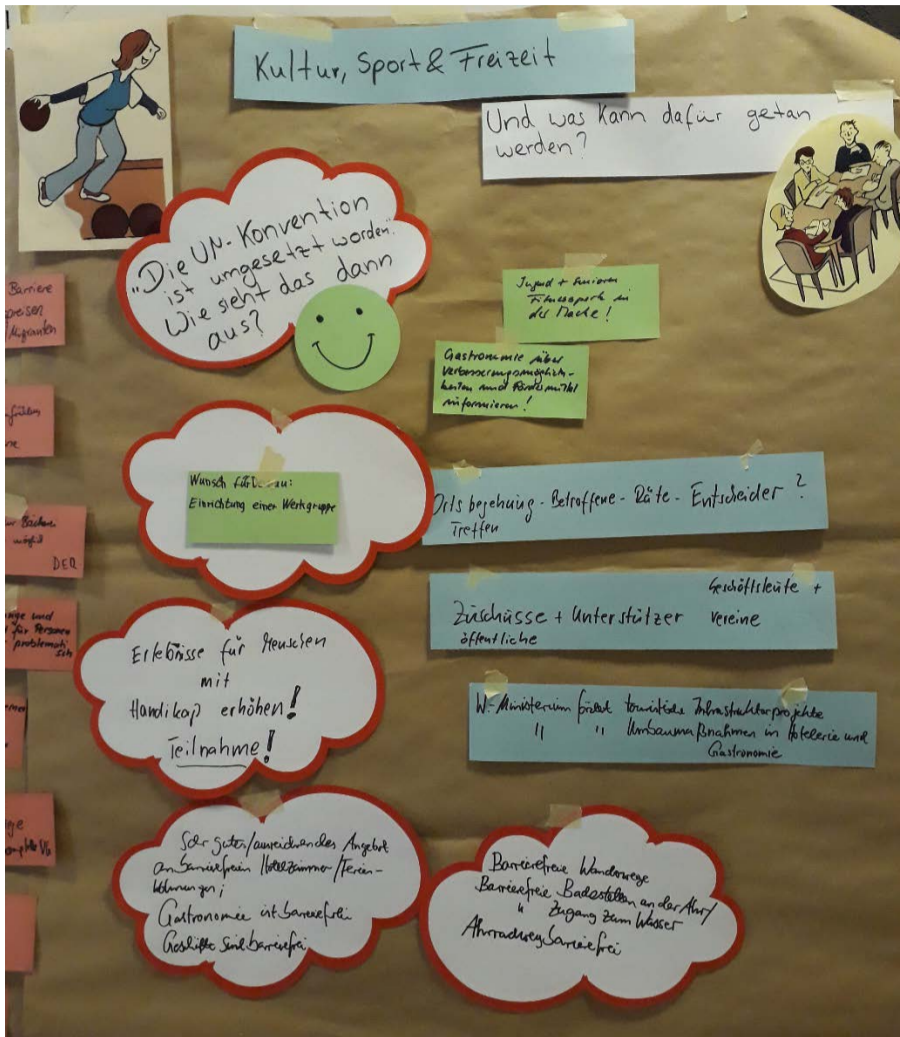 Kultur, Sport & Freizeit
Und was kann dafür getan
werden?
"Die UN-Konvention
ist umgesetzt worden."
Wie sieht das dann
aus?
Jugend + Senioren
Fitnesspark in
der Mache!
Gastronomie über
Verbesserungsmöglich-
keiten und Fördermittel
informieren!
Wunsch für
Einrichtung einer Werkgruppe
Ortsbegehung - Betroffene - Räte - Entscheider?
Treffen
Geschäftsleute +
Zuschüsse + Unterstützer Vereine
öffentliche
Erlebnisse für Menschen
mit
Handikap erhöhen!
Teilnahme!
W-Ministerium fördert touristische Infrastrukturprojekte
" " Umbaumaßnahmen in Hotelerie und
Gastronomie
Sehr gutes/ausreichendes Angebot
an barrierefreien Hotelzimmer/Ferien-
wohnungen;
Gastronomie ist barrierefrei
Geschäfte sind barrierefrei
Barrierefreie Wanderwege
Barrierefreie Badestellen an der Ahr/
" Zugang zum Wasser
Ahrradweg barrierefrei
Barriere
preisen
Migranten
DEQ
und
für Personen
problemati
sch